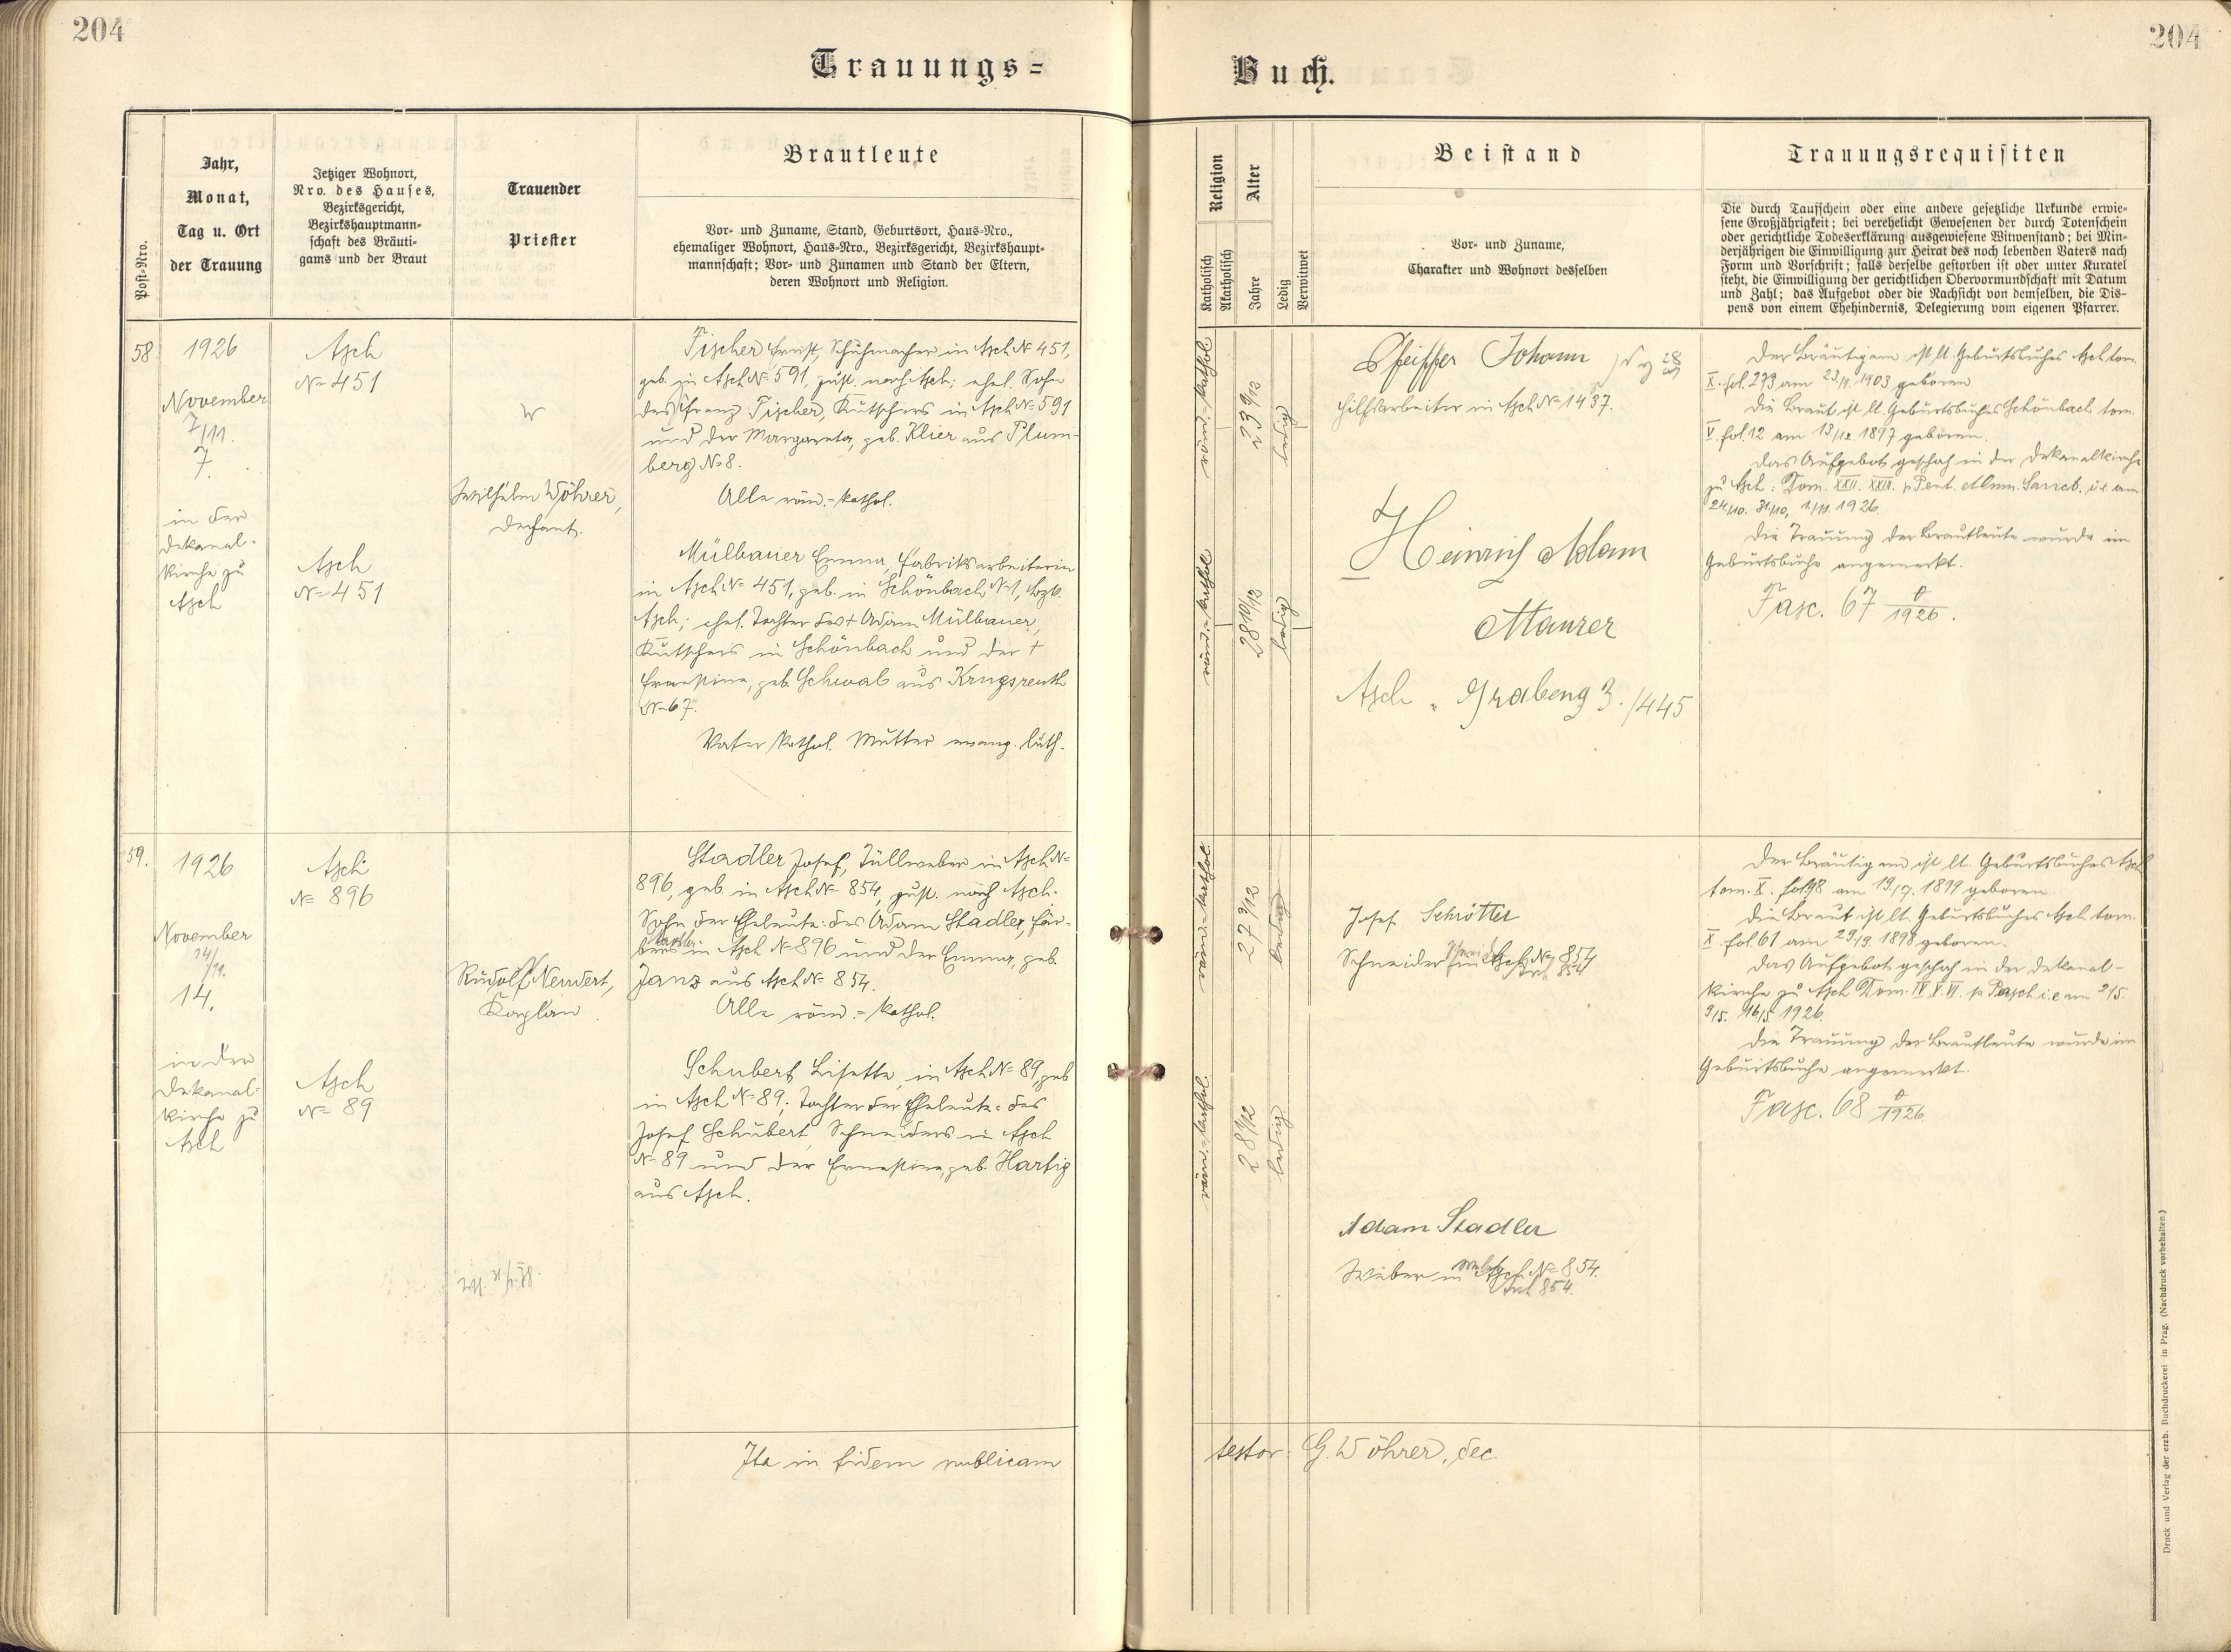 204
204
Trauungs-
Buch.
Post-Nro.
Jahr,
Monat,
Tag u. Ort
der Trauung
Jetziger Wohnort,
Nro. des Hauses,
Bezirksgericht,
Bezirkshauptmann-
schaft des Bräuti-
gams und der Braut
Trauender
Priester
Brautleute
Vor- und Zuname, Stand, Geburtsort, Haus-Nro.,
ehemaliger Wohnort, Haus-Nro., Bezirksgericht, Bezirkshaupt-
mannschaft; Vor- und Zunamen und Stand der Eltern,
deren Wohnort und Religion.
Religion
Katholisch
Akatholisch
Alter
Jahre
Ledig
Verwitwet
Beistand
Vor- und Zuname,
Charakter und Wohnort desselben
Trauungsrequisiten
Die durch Taufschein oder eine andere gesetzliche Urkunde erwie-
sene Großjährigkeit; bei verehelicht Gewesenen der durch Totenschein
oder gerichtliche Todeserklärung ausgewiesene Witwenstand; bei Min-
derjährigen die Einwilligung zur Heirat des noch lebenden Vaters nach
Form und Vorschrift; falls derselbe gestorben ist oder unter Kuratel
steht, die Einwilligung der gerichtlichen Obervormundschaft mit Datum
und Zahl; das Aufgebot oder die Nachsicht von demselben, die Dis-
pens von einem Ehehindernis, Delegierung vom eigenen Pfarrer.
58.
1926
November
7/11.
7.
in der
Dekanal-
kirche zu
Asch
Asch
No 451
Asch
No 451
Wilhelm Wöhrer,
Dechant.
Fischer Ernst, Schuhmacher in Asch No 451,
geb. in Asch No 591, zust. nach Asch; ehel. Sohn
des Franz Fischer, Kutschers in Asch No 591
und der Margareta, geb. Klier aus Plum-
berg No 8.
Alle röm.-kathol.
Mülbauer Emma, Fabriksarbeiterin
in Asch No 451, geb. in Schönbach No 1, Bzk.
Asch; ehel. Tochter des + Adam Mülbauer,
Kutschers in Schönbach und der +
Ernestine, geb. Schwab aus Krugsreuth
No 67.
Vater kathol. Mutter evang. luth.
röm.-kathol.
23 9/12
ledig
röm.-kathol.
28 10/12
ledig
Pfeiffer Johann
Hilfsarbeiter in Asch No 1437.
Heinrich Adam
Maurer
Asch. Grabeng 3./445
Der Bräutigam ist lt. Geburtsbuches Asch tom.
X. fol. 273 am 23./1. 1903 geboren
Die Braut ist lt. Geburtsbuches Schönbach tom.
V. fol. 12 am 13/12 1897 geboren.
Das Aufgebot geschah in der Dekanalkirche
zu Asch: Dom. XXII. XXIII. p. Pent. et Omn. Sanct. i.e. am
24./10. 31./10, 1./11. 1926.
Die Trauung der Brautleute wurde im
Geburtsbuche angemerkt.
Fasc. 67 0/1926.
59.
1926
November
14/11.
14.
in der
Dekanal-
kirche zu
Asch
Asch
No 896
Asch
No 89
Rudolf Neudert,
Kaplan
Stadler Josef, Tüllweber in Asch No
896, geb. in Asch No 854, zust. nach Asch.
Sohn der Eheleute: des Adam Stadler, Fär-
bers in Asch No 896 und der Emma, geb.
Janz aus Asch No 854.
Alle röm.-kathol.
Schubert Lisette, in Asch No 89 geb
in Asch No 89; Tochter der Eheleute: des
Josef Schubert, Schneiders in Asch
No 89 und der Ernestine, geb. Hartig
aus Asch.
röm.-kathol.
27 3/12
ledig
röm.-kathol.
28 1/12
ledig
Josef Schrötter
Schneider in Asch No 854
Adam Stadler
Weber in Asch No 854.
Asch 854.
Der Bräutigam ist lt. Geburtsbuches Asch
tom. X. fol. 98 am 19./7. 1899 geboren
Die Braut ist lt. Geburtsbuches Asch tom.
X. fol. 61 am 29./9. 1898 geboren.
Das Aufgebot geschah in der Dekanal-
kirche zu Asch Dom. IV. V. VI. p. Pasch i.e. am 2/5.
9/5. 16/5 1926.
Die Trauung der Brautleute wurde im
Geburtsbuche angemerkt.
Fasc. 68 0/1926
Ita in fidem publicam
testor: G. Wöhrer, dec.
Druck und Verlag der erzb. Buchdruckerei in Prag. (Nachdruck vorbehalten.)